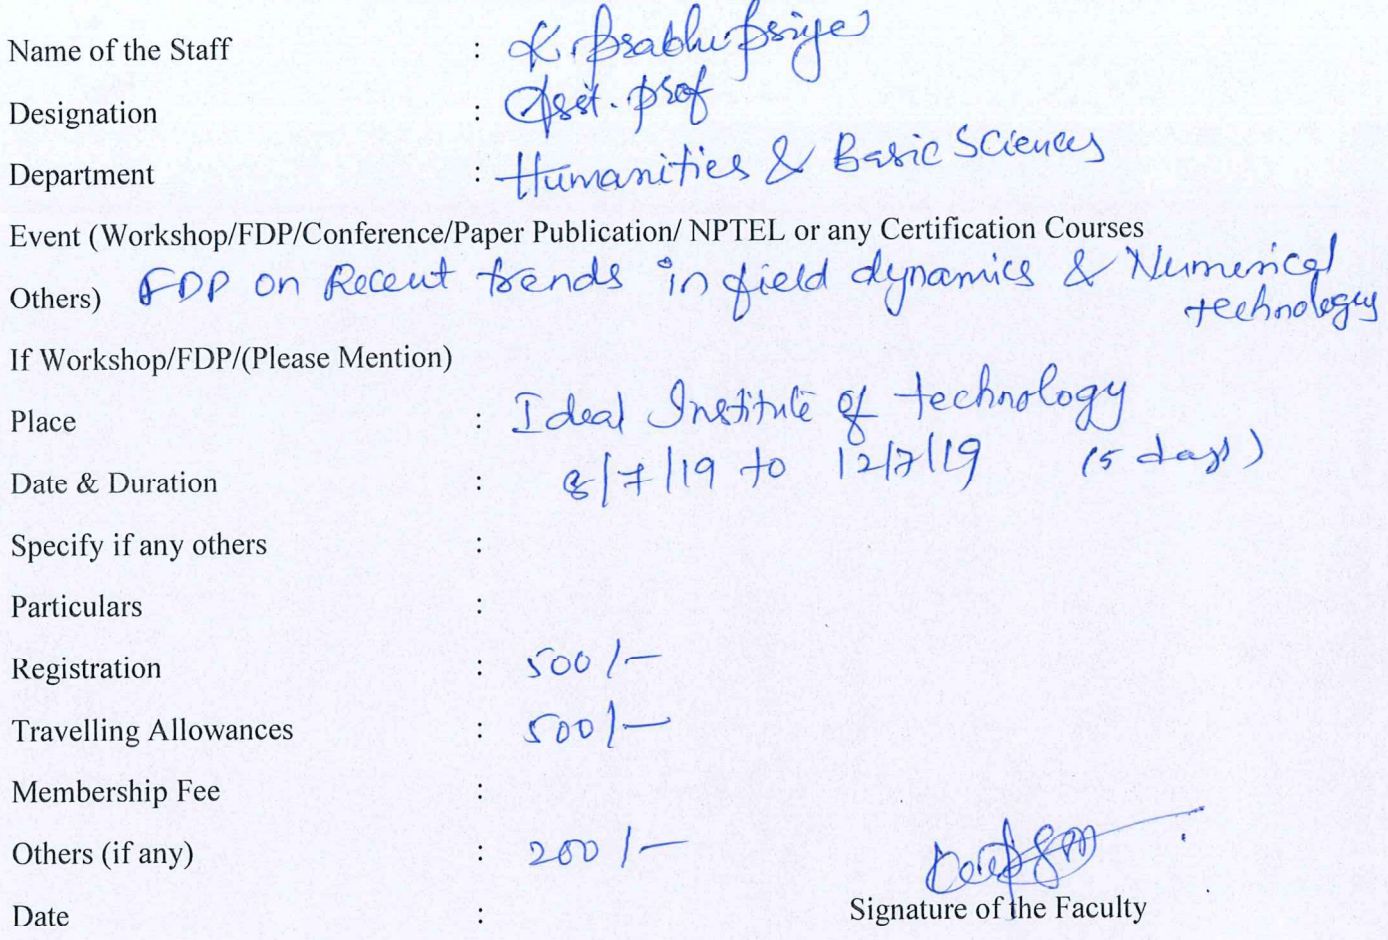 Name of the Staff : K. Prabhu priya
Designation : Asst. prof
Department : Humanities & Basic Sciences
Event (Workshop/FDP/Conference/Paper Publication/ NPTEL or any Certification Courses
Others) FDP on Recent trends in field dynamics & Numerical
technology
If Workshop/FDP/(Please Mention)
Place : Ideal Institute of technology
Date & Duration : 8/7/19 to 12/7/19 (5 days)
Specify if any others :
Particulars :
Registration : 500/-
Travelling Allowances : 500/-
Membership Fee :
Others (if any) : 200/-
Date :
Signature of the Faculty